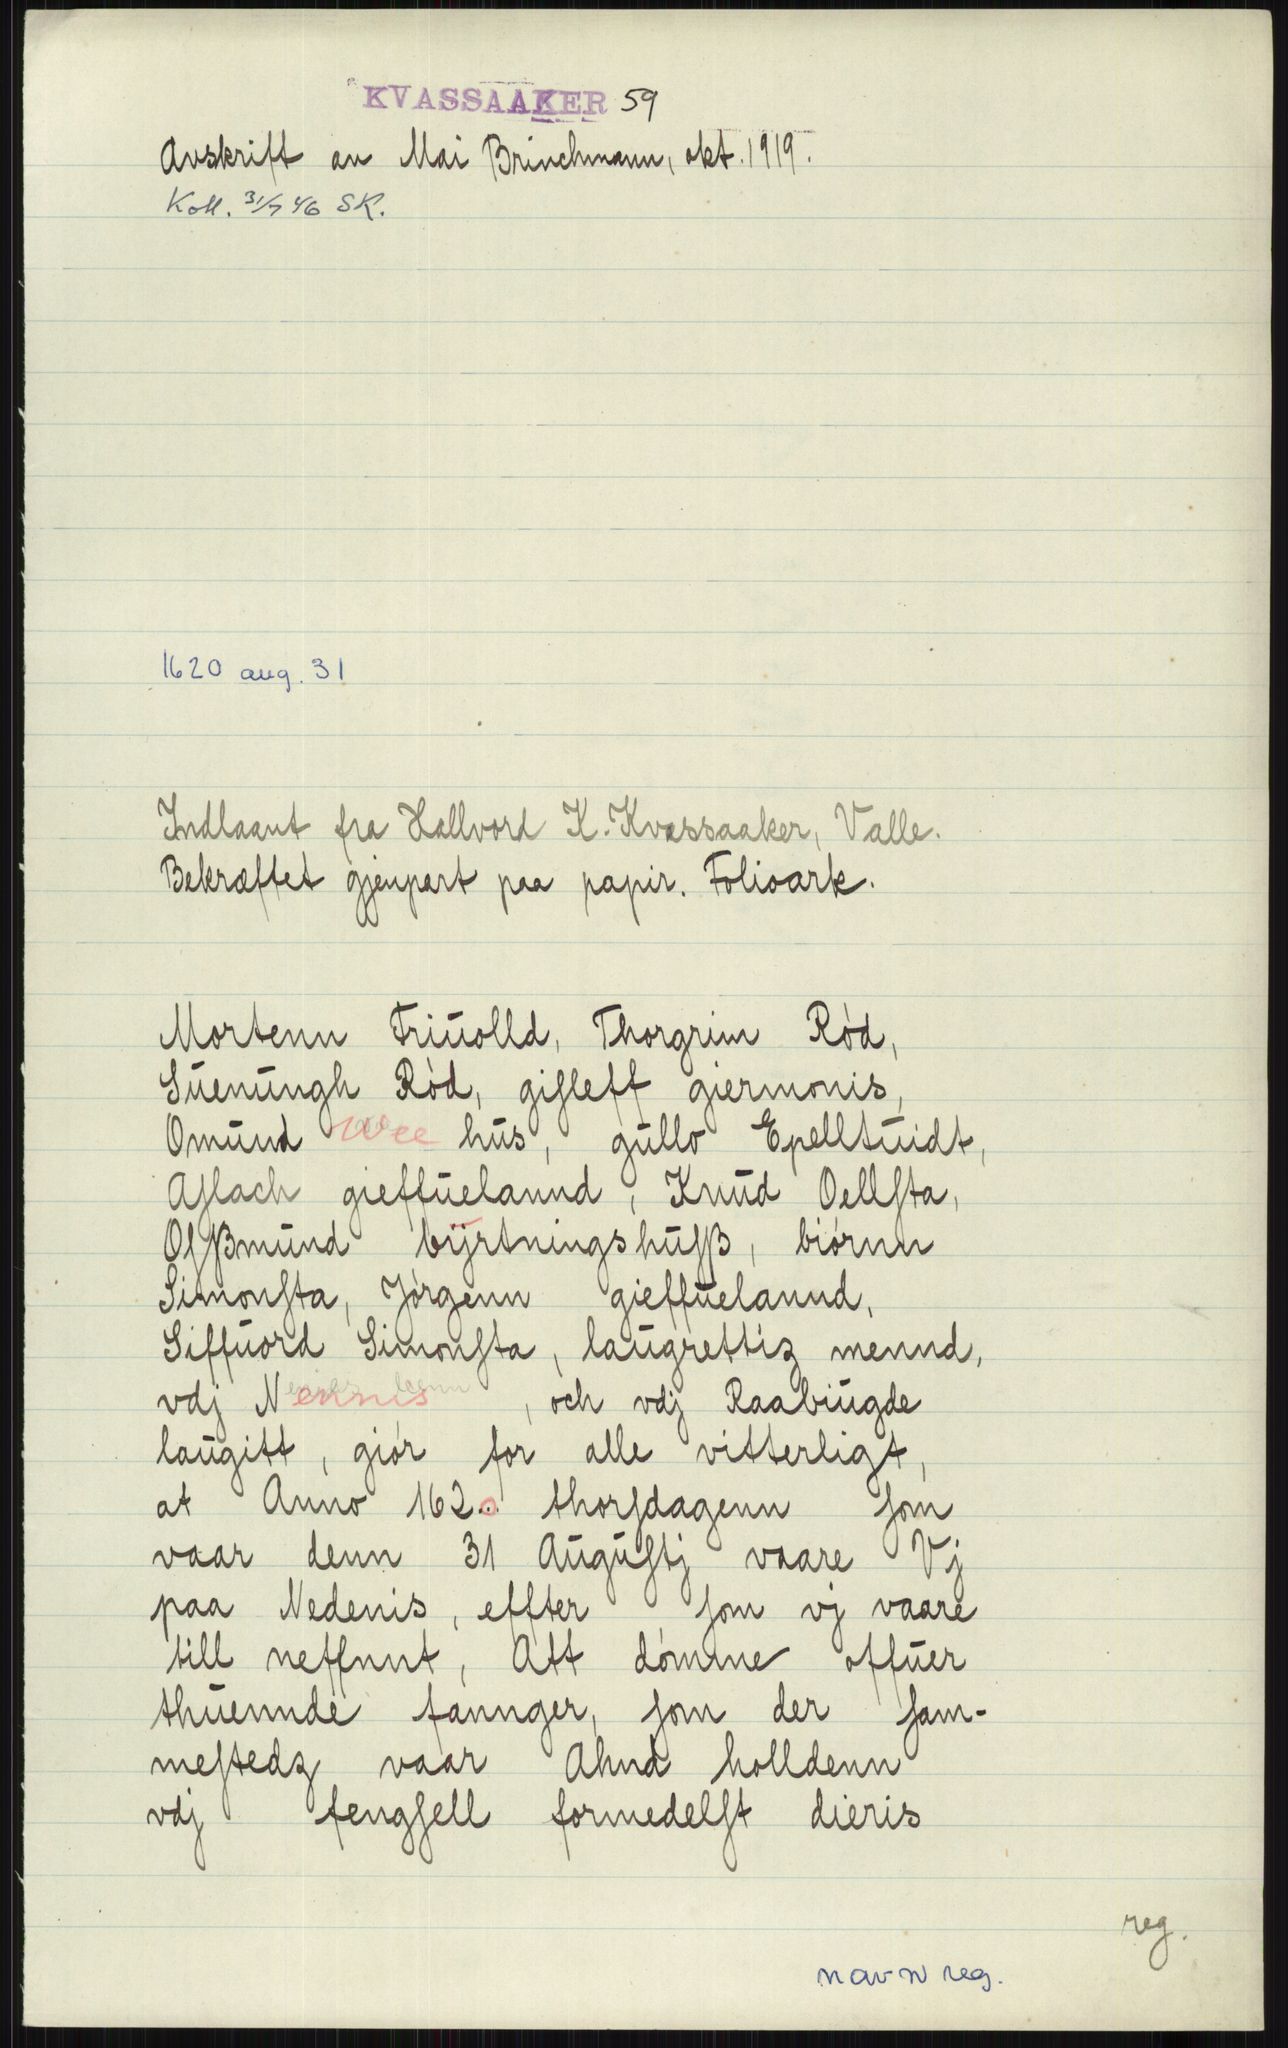 KVASSAAKER 59
Avskrift av Mai Brinchmann, okt. 1919.
Koll. 31/7 46 SK.
1620 aug. 31
Indlaant fra Hallvord K. Kvassaaker, Valle.
Bekræftet gjenpart paa papir. Folioark.
Mortenn Friuolld, Thorgrim Rød,
Suenungh Rød, gisleff giermonis,
Omund Wee hus, gullo Epelltuidt,
Aslach gieffuelannd, Knud Oellsta,
Olsßmund byrtningshusß, biørnn
Simonsta, Jørgenn gieffuelannd,
Siffuord Simonsta, laugrettiz mennd,
vdj Nednis, och vdj Raabiugde
laugitt, giør for alle vitterligt,
at Anno 1620 thorsdagenn som
vaar denn 31 Augustj vaare Vj
paa Nedenis, effter som vj vaare
till neffnnt, Att dømme offuer
thuennde fannger, som der sam-
mestedz vaar Ahnd holldenn
vdj fengsell formedelst dieris
reg.
navn reg.